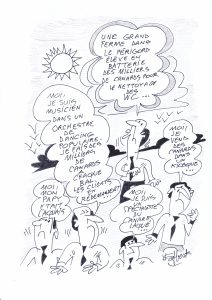 UNE GRAND
FERME DANS
LE PÉRIGORD
ÉLÈVE EN
BATTERIE
DES MILLIERS
DE CANARDS POUR
LE NETTOYAGE
DES
WC...
MOI,
JE SUIS
MUSICIEN
DANS UN
ORCHESTRE
DE
DANCING
POPULAIRE
JE FAIS DES
MILLIERS
DE
CANARDS
CHAQUE
BAL
LES CLIENTS
EN
REDEMANDENT
MOI,
JE
VENDS
DES
CANARDS
DANS
KIOSQUE
MOI,
MON
PAPY
ÉTAIT
LAQUAIS
MOI,
JE SUIS
SPÉCIALISTE
DU
CANARD
LAQUÉ